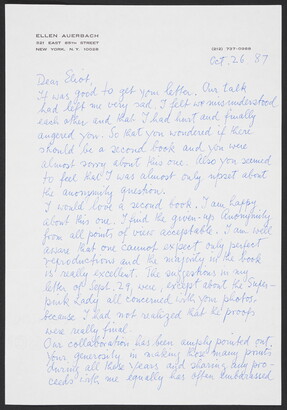 ELLEN AUERBACH
321 EAST 69TH STREET
NEW YORK, N.Y. 10028
(212) 737-0988
Oct. 26 87
Dear Eliot,
It was good to get your letter. Our talk
had left me very sad. I felt we misunderstood
each other and that I had hurt and finally
angered you. So that you wondered if there
should be a second book and you were
almost sorry about this one. Also you seemed
to feel that I was almost only upset about
the anonymity question.
I would love a second book. I am happy
about this one. I find the given-up anonymity
from all points of view acceptable. I am well
aware that one cannot expect only perfect
reproductions and the majority in the book
is really excellent. The suggestions in my
letter of Sept. 29, were, except about the Super-
pink Lady all concerned with your photos.
because I had not realized that the proofs
were really final.
Our collaboration has been amply pointed out.
Your generosity in making those many prints
during all these years and sharing any pro-
ceeds with me equally has often embarrassed